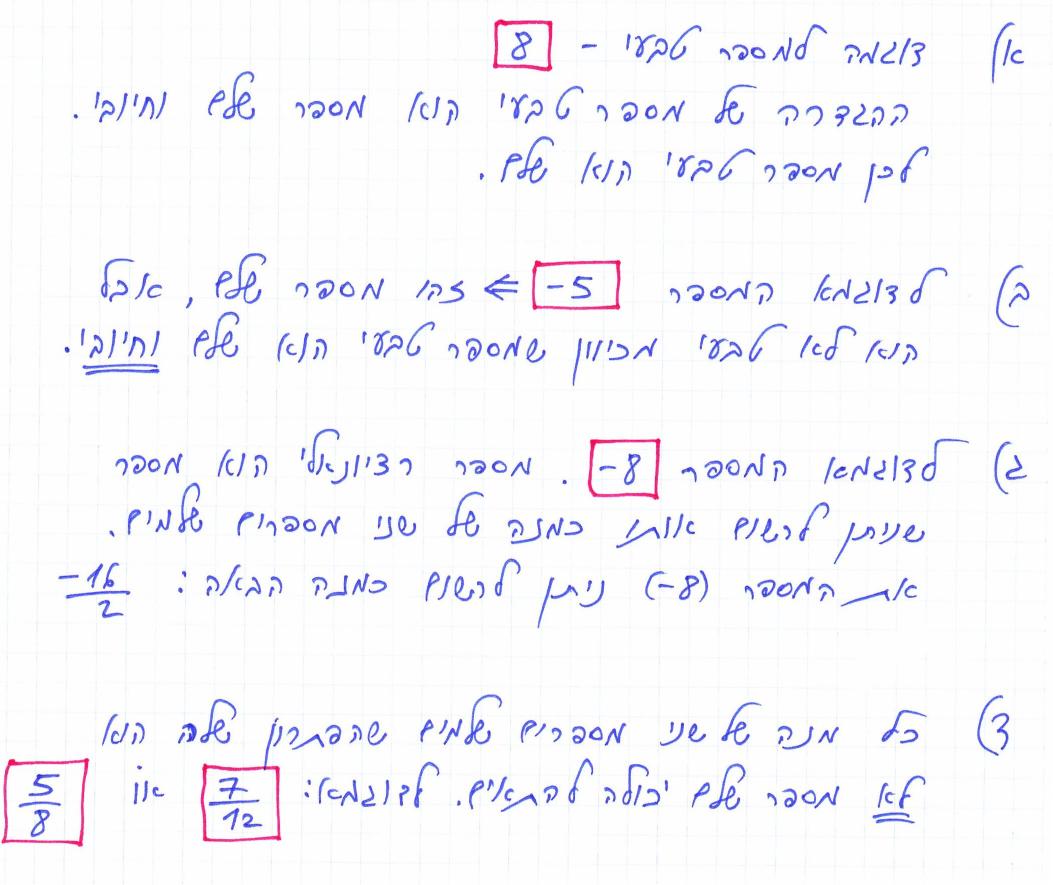 א) דוגמה למספר טבעי - 8
ההגדרה של מספר טבעי הוא מספר שלם וחיובי.
לכן מספר טבעי הוא שלם.
ב) לדוגמא המספר -5 ⇐ זהו מספר שלם, אבל
הוא לא טבעי מכיוון שמספר טבעי הוא שלם וחיובי.
ג) לדוגמא המספר -8. מספר רציונאלי הוא מספר
שניתן לרשום אותו כמנה של שני מספרים שלמים.
את המספר (-8) ניתן לרשום כמנה הבאה: -16/2
ד) כל מנה של שני מספרים שלמים שהפתרון שלה הוא
לא מספר שלם יכולה להתאים. לדוגמא: 7/12 או 5/8